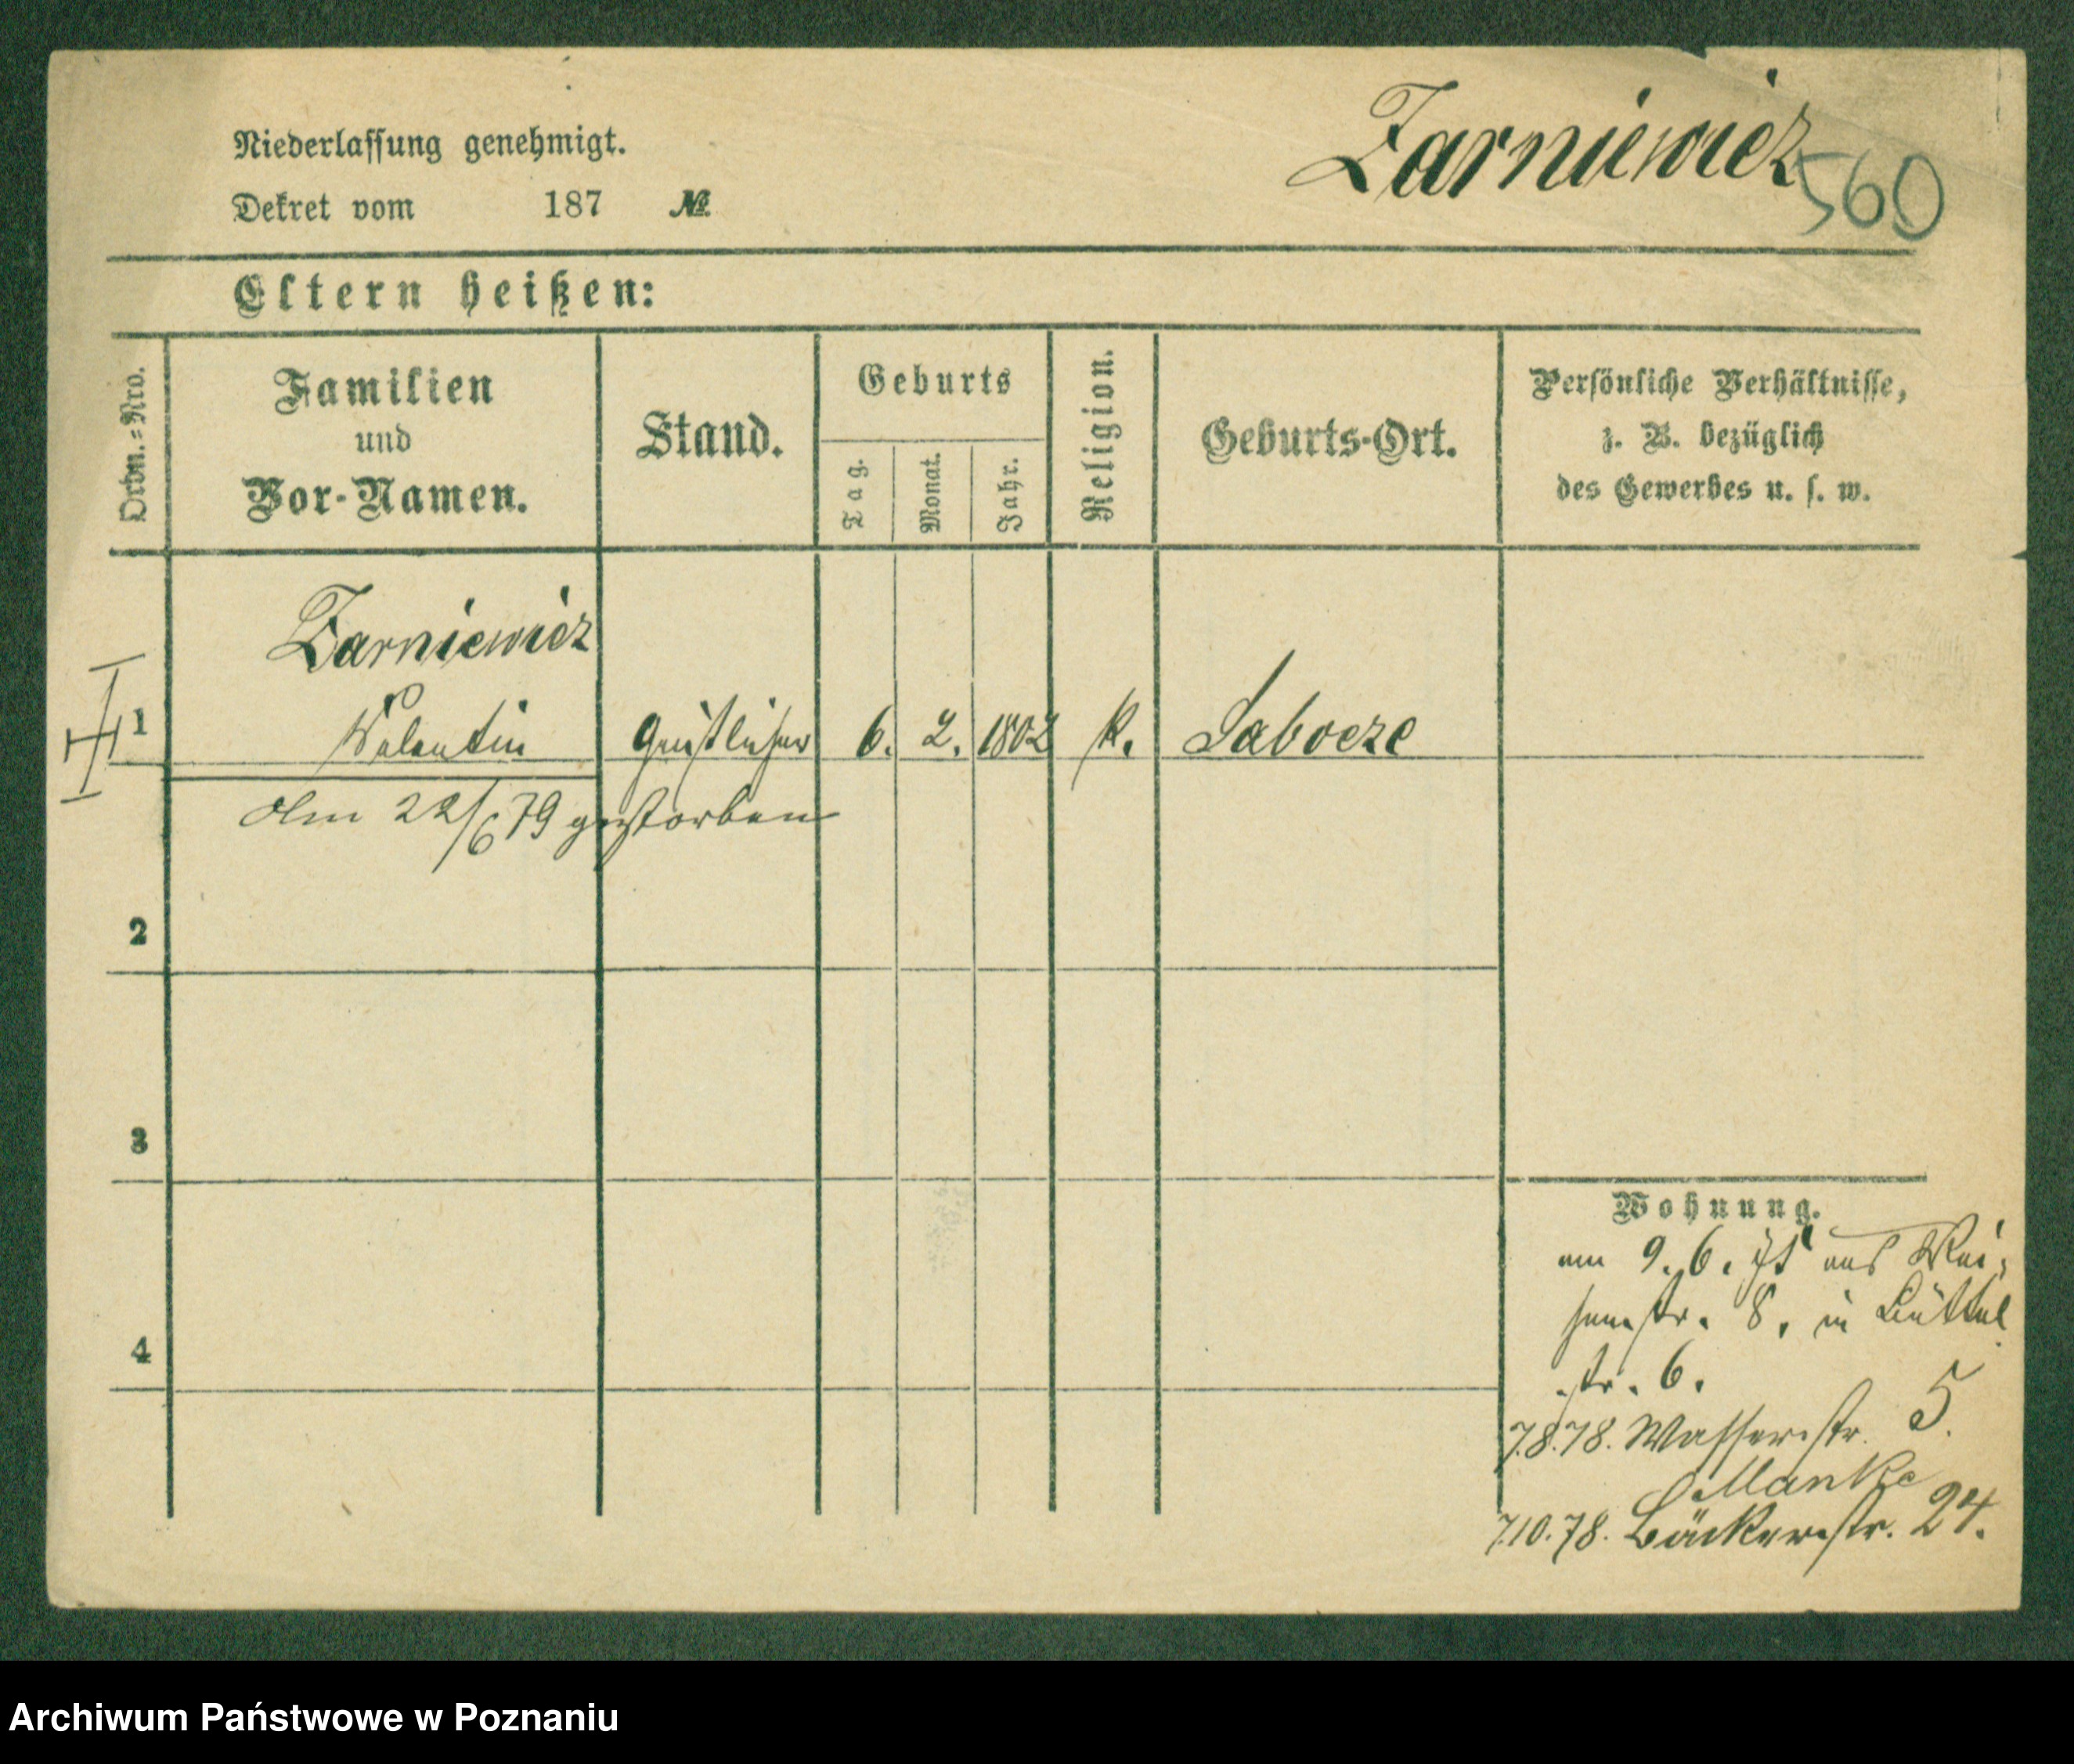 Niederlassung genehmigt.
Dekret vom 187 №
Żarniewicz
560
Eltern heißen:
Ordn.=Nro.
Familien
und
Vor-Namen.
Stand.
Geburts
Tag.
Monat.
Jahr.
Religion.
Geburts-Ort.
Persönliche Verhältnisse,
z. B. bezüglich
des Gewerbes u. s. w.
Żarniewicz
1 Valentin Geistlicher 6. 2. 1802 k.
Am 22/6 79 gestorben
2
3
4
Wohnung.
am 9. 6. aus Wai-
senstr. 8. in Büttel
str. 6.
7.8.78. Wasserstr. 5.
Manke
7.10.78. Bäckerstr. 24.
Archiwum Państwowe w Poznaniu